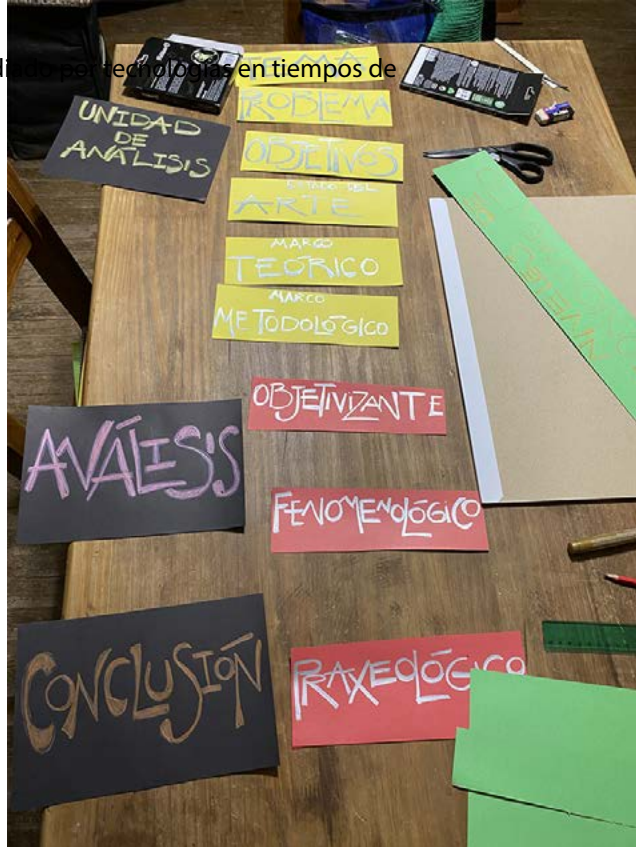 diado por tecnologías en tiempos de
TEMA
PROBLEMA
UNIDAD
DE
ANÁLISIS
OBJETIVOS
ESTADO DEL
ARTE
MARCO
TEÓRICO
MARCO
METODOLÓGICO
OBJETIVIZANTE
ANÁLISIS
FENOMENOLÓGICO
CONCLUSIÓN
PRAXEOLÓGICO